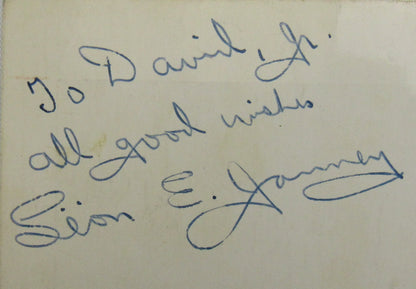 To David, Jr.
all good wishes
Léon E. Janney